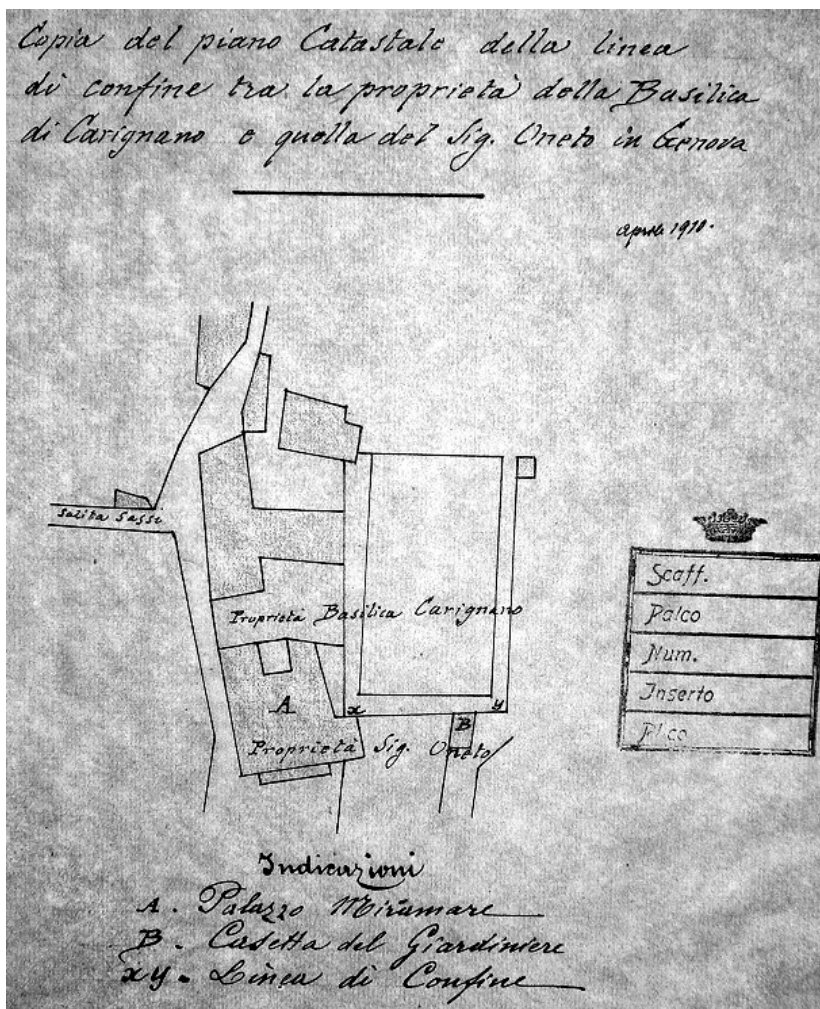 Copia del piano Catastale della linea
di confine tra la proprietà della Basilica
di Carignano e quella del Sig. Oneto in Genova
Aprile 1910.
Salita Sassi
Proprietà Basilica Carignano
A
x
y
B
Proprietà Sig. Oneto
Scaff.
Palco
Num.
Inserto
Indicazioni
A. Palazzo Miramare
B. Casetta del Giardiniere
xy. Linea di Confine